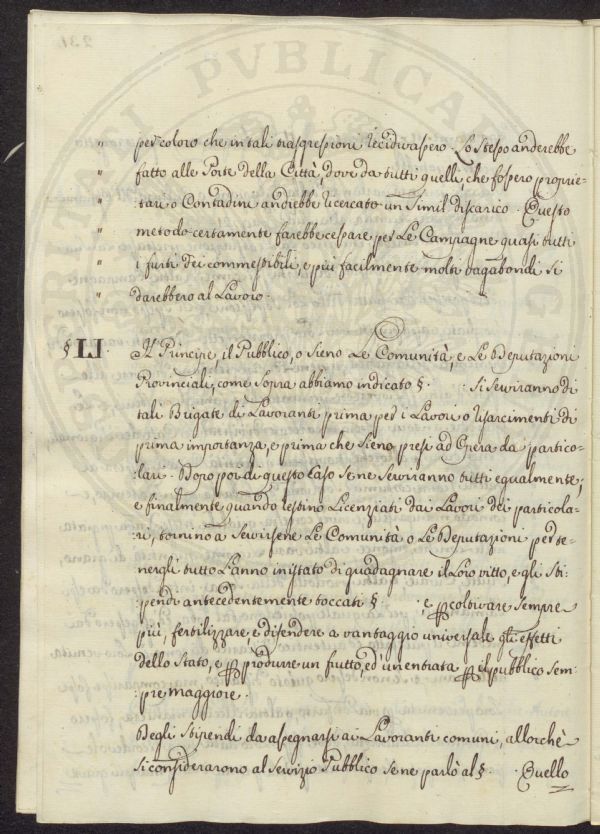 " per coloro che in tali trasgressioni recidivassero. Lo stesso anderebbe
" fatto alle Porte della Città, dove da tutti quelli, che fossero proprie-
" tari o Contadini andrebbe ricercato un simil discarico. Questo
" metodo certamente farebbe cessare per Le Campagne quasi tutti
" i furti dei commestibili, e più facilmente molti vagabondi si
" darebbero al Lavoro.
§ LI. Il Principe, il Pubblico, o sieno Le Comunità, e Le Deputazioni
Provinciali, come sopra abbiamo indicato §. si serviranno di
tali Brigate di Lavoranti prima per i Lavori o risarcimenti di
prima importanza, e prima che sieno presi ad Opera da partico-
lari. Dopo poi di questo caso se ne serviranno tutti egualmente;
e finalmente quando restino Licenziati dai Lavori dei particola-
ri, tornino a servirsene Le Comunità o Le Deputazioni per te-
nergli tutto L'anno in istato di guadagnare il Loro vitto, e gli sti-
pendi antecedentemente toccati §. , e ꝑ coltivare sempre
più, fertilizzare, e difendere a vantaggio universale gli effetti
dello Stato, e ꝑ produrre un frutto, ed un entrata ꝑ il pubblico sem-
pre maggiore.
Degli stipendi da assegnarsi ai Lavoranti comuni, allorchè
si considerarono al servizio Pubblico se ne parlò al §. Quello